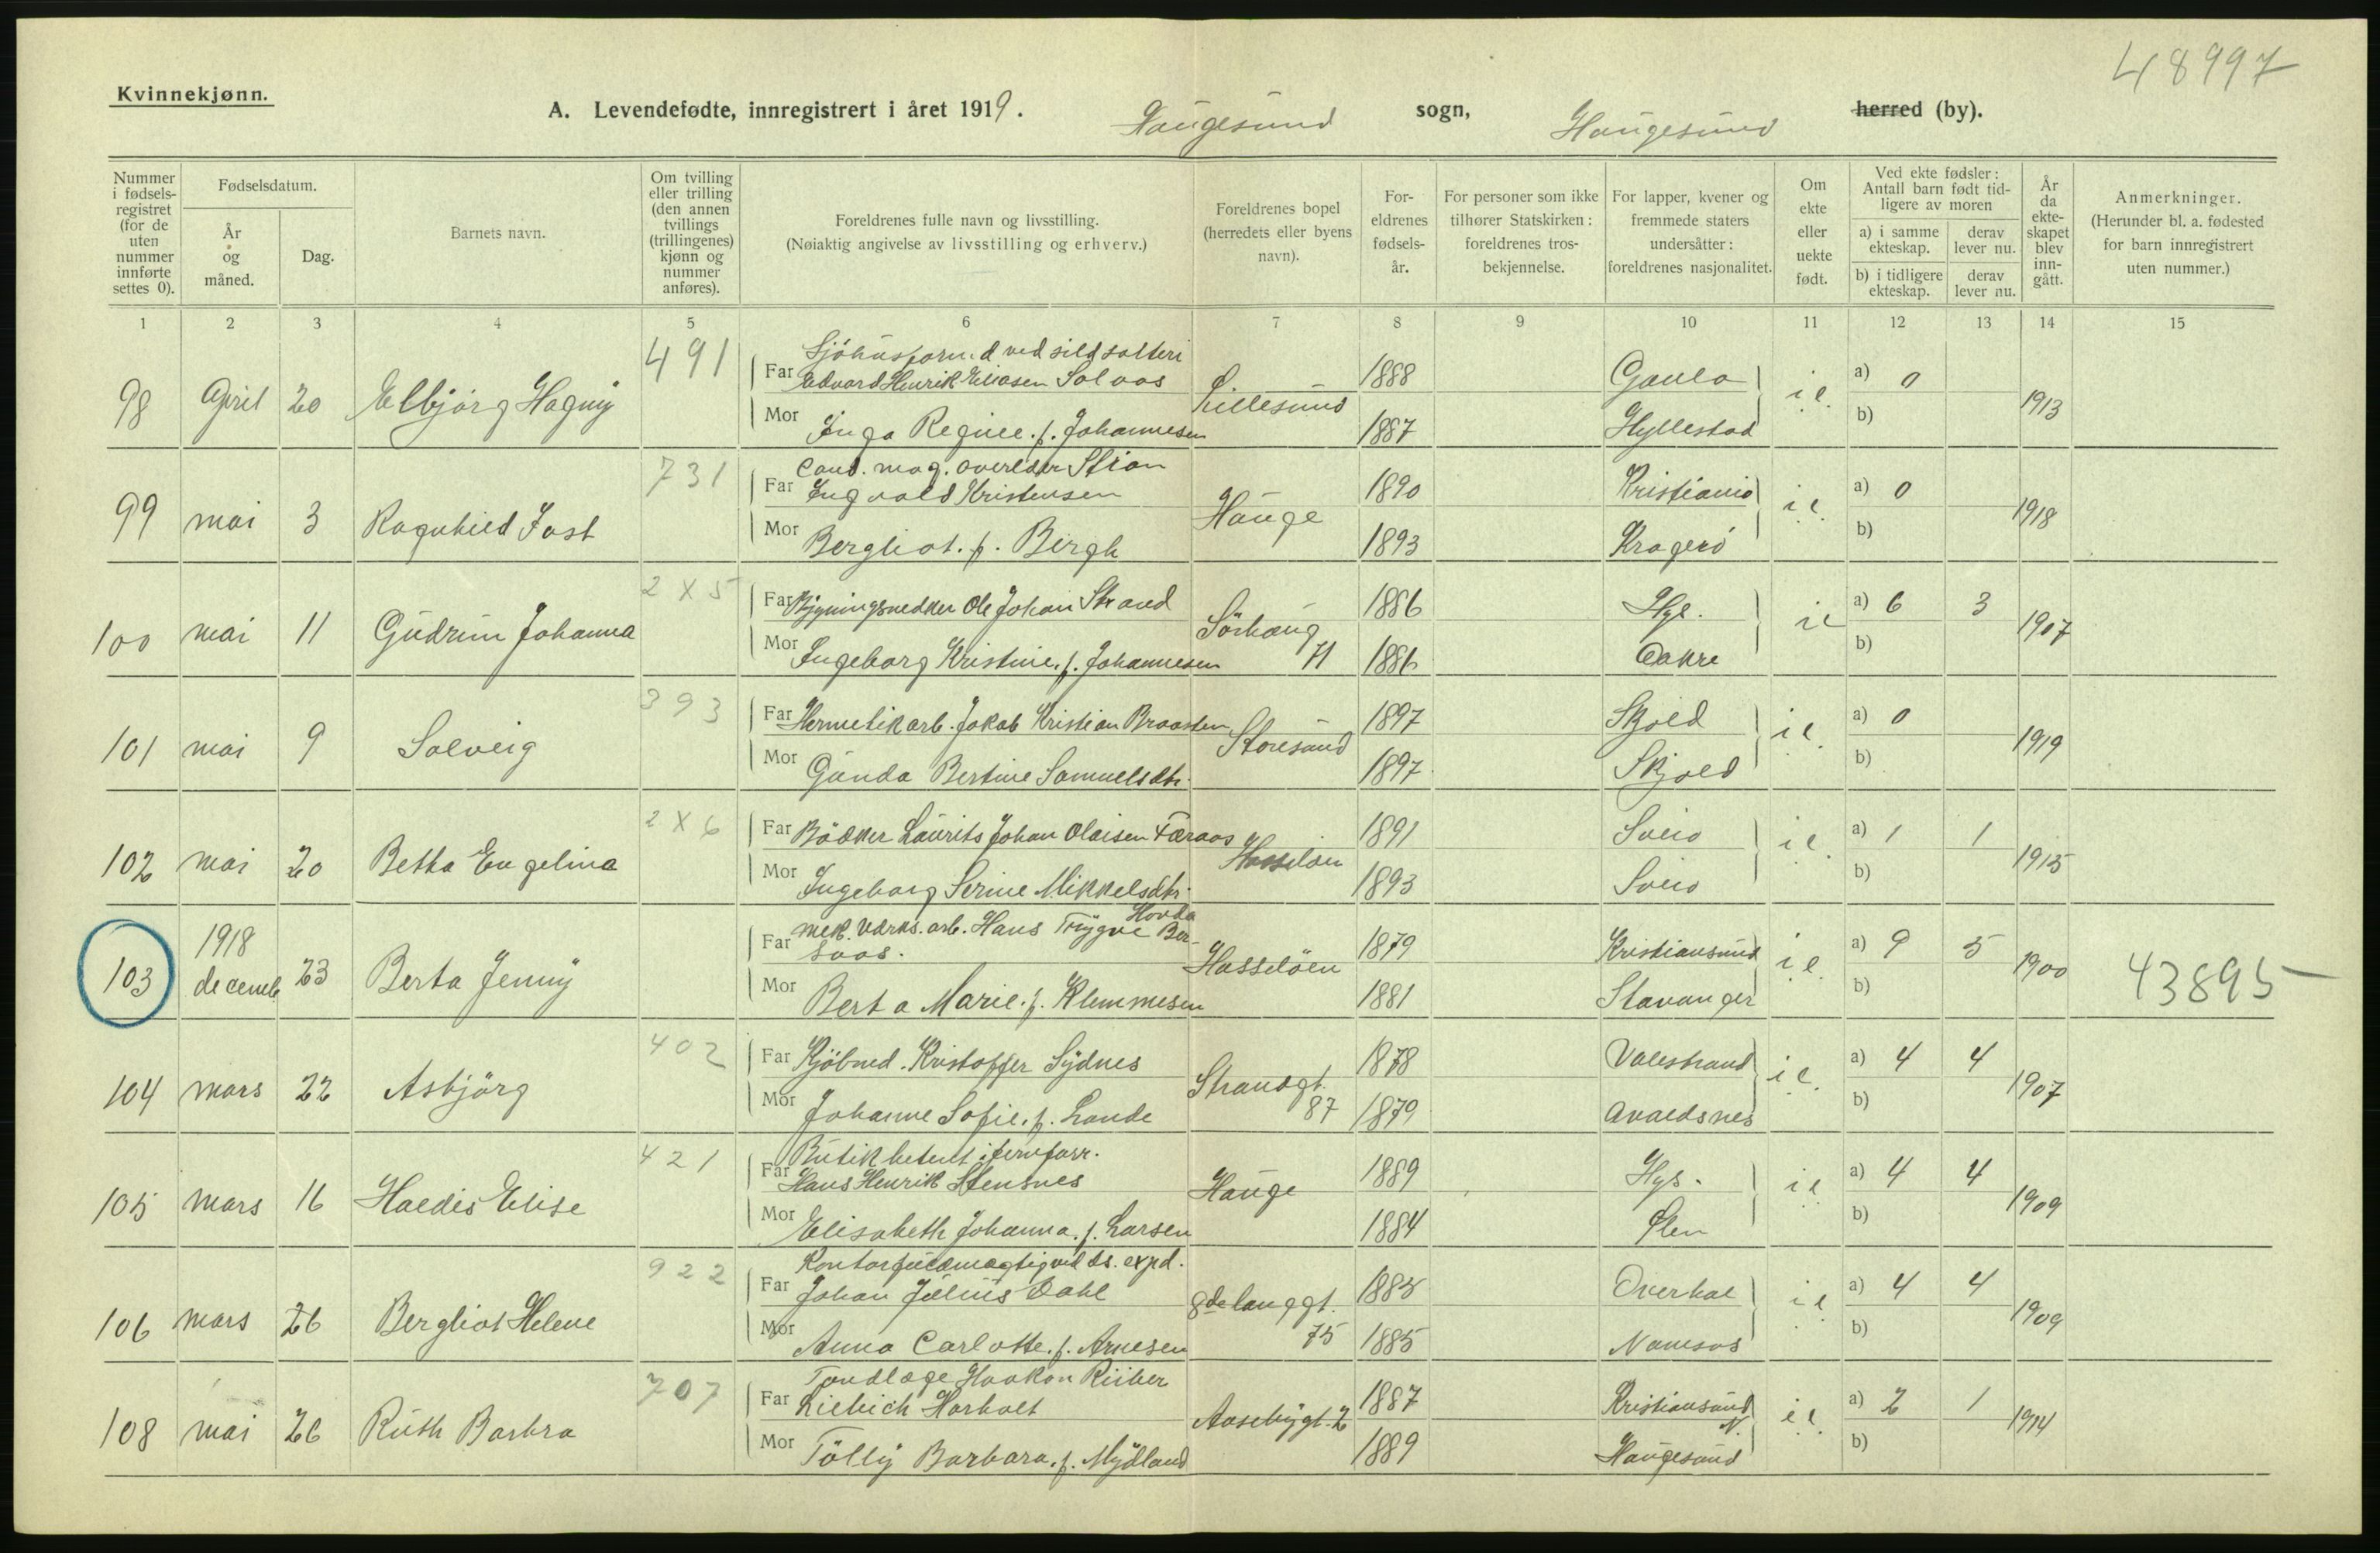 48997
Kvinnekjønn.
A. Levendefødte, innregistrert i året 1919. Haugesund sogn, Haugesund herred (by).
Nummer i fødsels-registret (for de uten nummer innførte settes 0).
Fødselsdatum.
År og måned.
Dag.
Barnets navn.
Om tvilling eller trilling (den annen tvillings (trillingenes) kjønn og nummer anføres).
Foreldrenes fulle navn og livsstilling.
(Nøiaktig angivelse av livsstilling og erhverv.)
Foreldrenes bopel (herredets eller byens navn).
For-eldrenes fødsels-år.
For personer som ikke tilhører Statskirken: foreldrenes tros-bekjennelse.
For lapper, kvener og fremmede staters undersåtter: foreldrenes nasjonalitet.
Om ekte eller uekte født.
Ved ekte fødsler: Antall barn født tid-ligere av moren
a) i samme ekteskap.
derav lever nu.
b) i tidligere ekteskap.
derav lever nu.
År da ekte-skapet blev inn-gått.
Anmerkninger.
(Herunder bl. a. fødested for barn innregistrert uten nummer.)
1 2 3 4 5 6 7 8 9 10 11 12 13 14 15
491 Sjöhusform.d ved sildsalteri
Far Edvard Henrik Eliasen Solaas 1888 Gaula a) 0
98 April 20 Elbjörg Hagny Lillesund i e. 1913
Mor Inga Regine. f. Johannesen 1887 Hyllestad b)
731 Cand. mag. Stian
Far Ingvald Kristensen 1890 Kristiania a) 0
99 mai 3 Ragnhild Jost Hauge i e. 1918
Mor Bergliot. f. Bergh 1893 Kragerö b)
2 X 5 Far Bygningssnedker Ole Johan Strand 1886 a) 6 3
100 mai 11 Gudrun Johanna Sörhaug 71 i e 1907
Mor Ingeborg Kristine. f. Johannesen 1886 Aakre b)
393 Far Hermetikarb. Jakob Kristian Braasten 1897 Skjold a) 0
101 mai 9 Solveig Storesund i e. 1919
Mor Gunda Bertine Samuelsdtr. 1897 Skjold b)
2 X 6 Far Bödker Laurits Johan Olaisen Færaas 1891 Sveio a) 1 1
102 mai 20 Betha Engelina Hasselöen i e. 1915
Mor Ingeborg Serine Mikkelsdtr. 1893 Sveio b)
Hovda
1918 Far mek. værks. arb. Hans Trygve Ber-
saas. 1879 Kristiansund a) 9 5
103 decemb. 23 Berta Jenny Hasselöen i e. 1900 43895
Mor Berta Marie. f. Klemmesen 1881 Stavanger b)
402 Far Kjöbmd. Kristoffer Sydnes 1878 Valestrand a) 4 4
104 mars 22 Asbjörg Strandgt. 87 i e. 1907
Mor Johanne Sofie. f. Lande 1879 Avaldsnes b)
421 Butikbetent i jernforr.
Far Hans Henrik Stensnes 1889 a) 4 4
105 mars 16 Haldis Elise Hauge i e 1909
Mor Elisabeth Johanna. f. Larsen 1884 Ølen b)
922 Kontorfuldmægtig ved ds. expd.
Far Johan Julius Dahl 1885 Overhal a) 4 4
106 mars 26 Bergliot Helene gdelanggt. 75 i e 1909
Mor Anna Carlotte. f. Arnesen 1885 Namsos b)
707 Tandlæge Haakon Riiber
Far Liebich Harholt 1887 Kristiansund N. a) 2 1
108 mai 26 Ruth Barbra Aasebygt. 2 i e. 1914
Mor Tölly Barbara. f. Mydland 1889 Haugesund b)